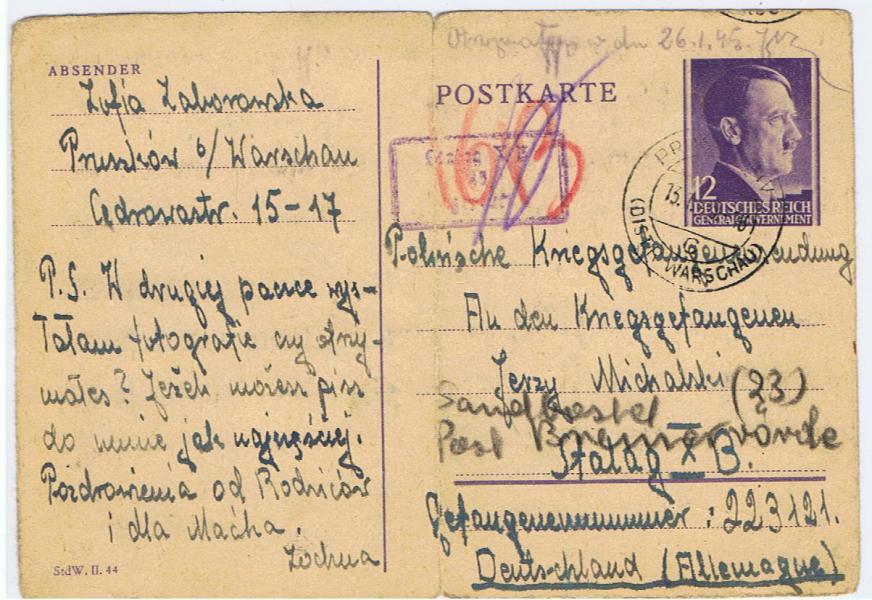 ABSENDER
Zofja Zaborowska
Pruszków b/Warschau
Cedrowastr. 15-17
P.S. W drugiej paczce wys-
łałam fotografie czy otrzy-
małeś? Jeżeli możesz pisz
do mnie jak najczęściej.
Pozdrowienia od Rodziców
i dla Maćka.
Zochna
StdW. II. 44
26.1.45.
POSTKARTE
12
DEUTSCHES REICH
GENERALGOUVERNEMENT
(DISTR. WARSCHAU)
Polnische Kriegsgefangenensendung
An den Kriegsgefangenen
Jerzy Michalski (23)
Sandbostel
Post Bremervörde
Stalag X B.
Gefangenennummer: 223121.
Deutschland (Allemagne)